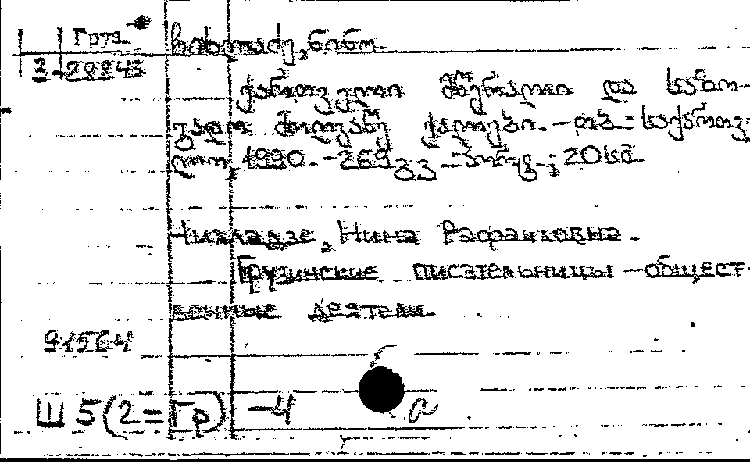 Груз.
2-29843
ჩიხლაძე, ნინო.
ქართველი მწერალი და საზო-
გადო მოღვაწე ქალები. - თბ.: საქართვე-
ლო, 1990. - 269 გვ. ; 20 სმ.
Чихладзе, Нина Рафаиловна.
Грузинские писательницы - общест-
венные деятели.
91564
Ш 5(2=Гр) -4
а